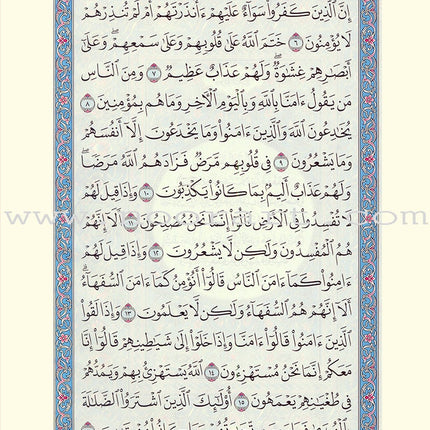 إِنَّ ٱلَّذِينَ كَفَرُوا۟ سَوَآءٌ عَلَيْهِمْ ءَأَنذَرْتَهُمْ أَمْ لَمْ تُنذِرْهُمْ
لَا يُؤْمِنُونَ ٦ خَتَمَ ٱللَّهُ عَلَىٰ قُلُوبِهِمْ وَعَلَىٰ سَمْعِهِمْ ۖ وَعَلَىٰٓ
أَبْصَٰرِهِمْ غِشَٰوَةٌ ۖ وَلَهُمْ عَذَابٌ عَظِيمٌ ٧ وَمِنَ ٱلنَّاسِ
مَن يَقُولُ ءَامَنَّا بِٱللَّهِ وَبِٱلْيَوْمِ ٱلْءَاخِرِ وَمَا هُم بِمُؤْمِنِينَ ٨
يُخَٰدِعُونَ ٱللَّهَ وَٱلَّذِينَ ءَامَنُوا۟ وَمَا يَخْدَعُونَ إِلَّآ أَنفُسَهُمْ
وَمَا يَشْعُرُونَ ٩ فِى قُلُوبِهِم مَّرَضٌ فَزَادَهُمُ ٱللَّهُ مَرَضًا ۖ
وَلَهُمْ عَذَابٌ أَلِيمٌۢ بِمَا كَانُوا۟ يَكْذِبُونَ ١٠ وَإِذَا قِيلَ لَهُمْ
لَا تُفْسِدُوا۟ فِى ٱلْأَرْضِ قَالُوٓا۟ إِنَّمَا نَحْنُ مُصْلِحُونَ ١١ أَلَآ إِنَّهُمْ
هُمُ ٱلْمُفْسِدُونَ وَلَٰكِن لَّا يَشْعُرُونَ ١٢ وَإِذَا قِيلَ لَهُمْ
ءَامِنُوا۟ كَمَآ ءَامَنَ ٱلنَّاسُ قَالُوٓا۟ أَنُؤْمِنُ كَمَآ ءَامَنَ ٱلسُّفَهَآءُ ۗ
أَلَآ إِنَّهُمْ هُمُ ٱلسُّفَهَآءُ وَلَٰكِن لَّا يَعْلَمُونَ ١٣ وَإِذَا لَقُوا۟
ٱلَّذِينَ ءَامَنُوا۟ قَالُوٓا۟ ءَامَنَّا وَإِذَا خَلَوْا۟ إِلَىٰ شَيَٰطِينِهِمْ قَالُوٓا۟ إِنَّا
مَعَكُمْ إِنَّمَا نَحْنُ مُسْتَهْزِءُونَ ١٤ ٱللَّهُ يَسْتَهْزِئُ بِهِمْ وَيَمُدُّهُمْ
فِى طُغْيَٰنِهِمْ يَعْمَهُونَ ١٥ أُو۟لَٰٓئِكَ ٱلَّذِينَ ٱشْتَرَوُا۟ ٱلضَّلَٰلَةَ